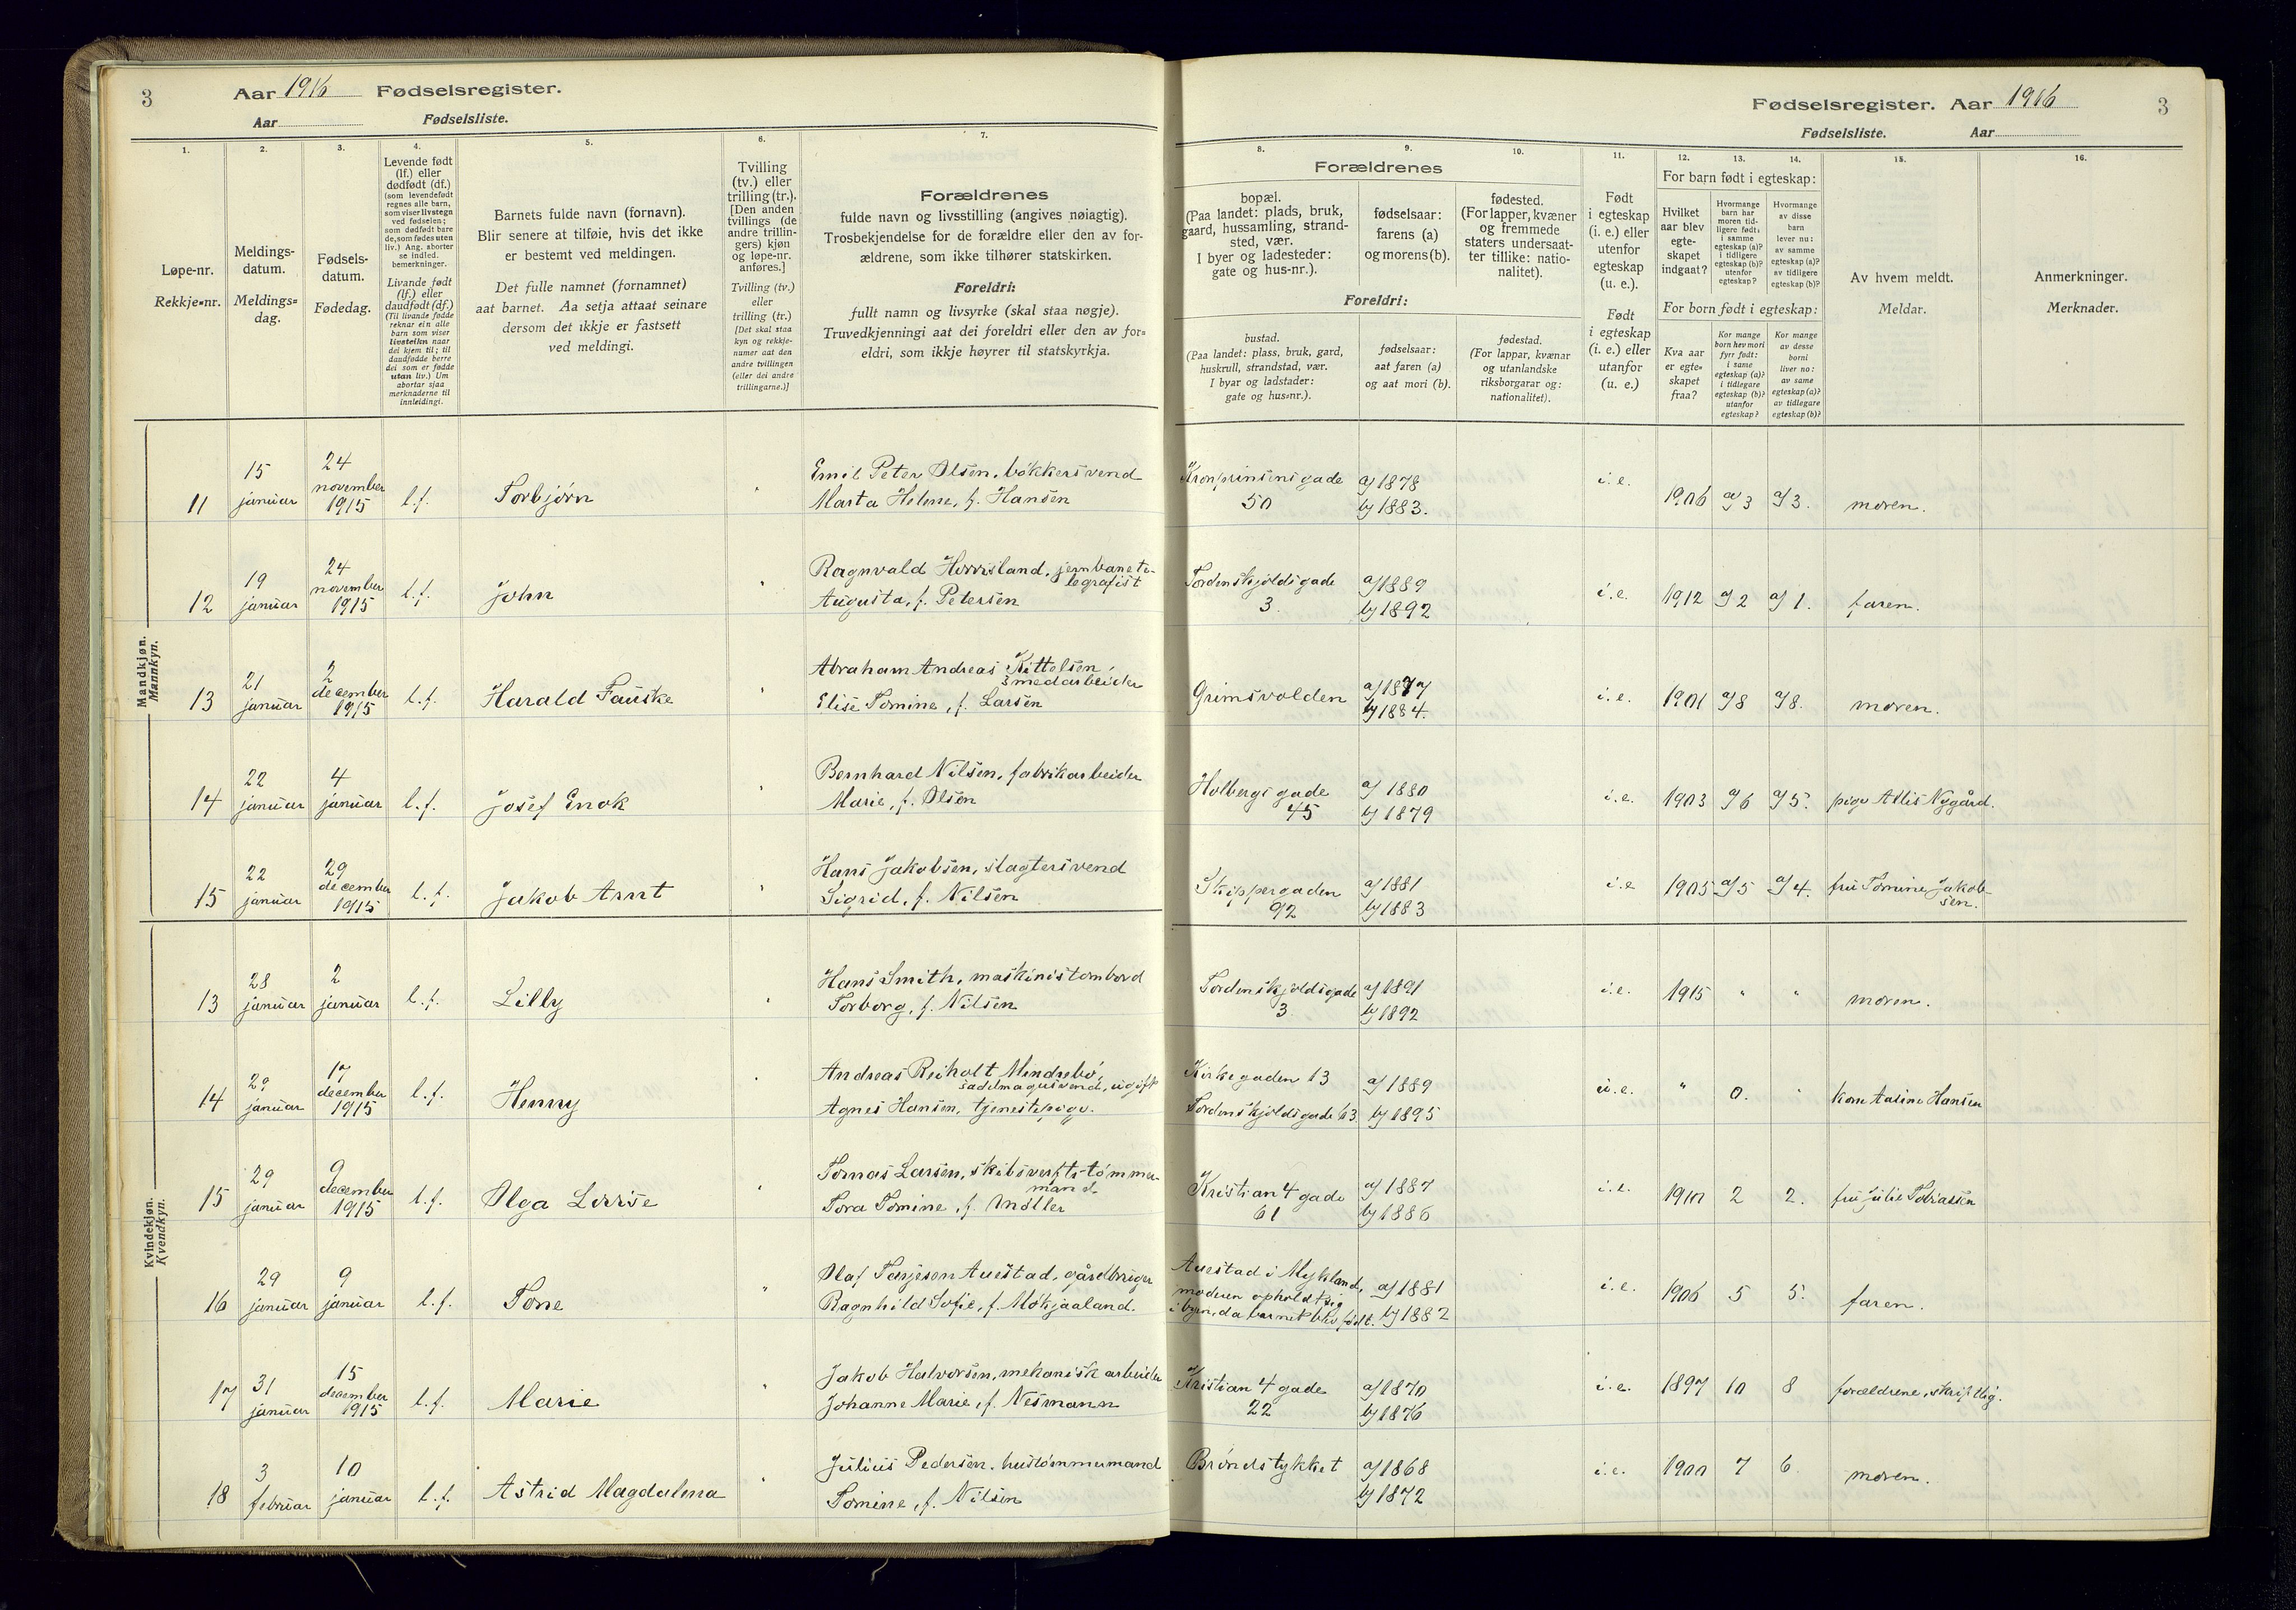 3
Aar 1916 Fødselsregister.
Aar Fødselsliste.
Fødselsregister. Aar 1916
3
Fødselsliste. Aar
1.
2.
3.
4.
5.
6.
7.
8.
9.
10.
11.
12.
13.
14.
15.
16.
Løpe-nr.
Rekkje-nr.
Meldings-
datum.
Meldings-
dag.
Fødsels-
datum.
Fødedag.
Levende født
(lf.) eller
dødfødt (df.)
(som levendefødt
regnes alle barn,
som viser livstegn
ved fødselen;
som dødfødt bare
de, som fødes uten
liv.) Ang. aborter
se indled.
bemerkninger.
Livande født
(lf.) eller
daudfødt (df.)
(Til livande fødde
reknar ein alle
barn som viser
livsteikn naar
dei kjem til; til
daudfødde berre
dei som er fødde
utan liv.) Um
abortar sjaa
merknaderne til
innleidingi.
Barnets fulde navn (fornavn).
Blir senere at tilføie, hvis det ikke
er bestemt ved meldingen.
Det fulle namnet (fornamnet)
aat barnet. Aa setja attaat seinare
dersom det ikkje er fastsett
ved meldingi.
Tvilling
(tv.) eller
trilling (tr.).
[Den anden
tvillings (de
andre trillin-
gers) kjøn
og løpe-nr.
anføres.]
Tvilling (tv.)
eller
trilling (tr.)
[Det skal staa
kyn og rekkje-
numer aat den
andre tvillingen
(eller dei andre
trillingarne.)]
Forældrenes
fulde navn og livsstilling (angives nøiagtig).
Trosbekjendelse for de forældre eller den av for-
ældrene, som ikke tilhører statskirken.
Foreldri:
fullt namn og livsyrke (skal staa nøgje).
Truvedkjenningi aat dei foreldri eller den av for-
eldri, som ikkje høyrer til statskyrkja.
Forældrenes
bopæl.
(Paa landet: plads, bruk,
gaard, hussamling, strand-
sted, vær.
I byer og ladesteder:
gate og hus-nr.).
fødselsaar:
farens (a)
og morens (b).
fødested.
(For lapper, kvæner
og fremmede
staters undersaat-
ter tillike: natio-
nalitet).
Foreldri:
bustad.
(Paa landet: plass, bruk, gard,
huskrull, strandstad, vær.
I byar og ladstader:
gate og hus-nr.).
fødselsaar:
aat faren (a)
og aat mori (b).
fødestad.
(For lappar, kvænar
og utanlandske
riksborgarar og:
nationalitet).
Født
i egteskap
(i. e.) eller
utenfor
egteskap
(u. e.).
Født
i egteskap
(i. e.) eller
utanfor
(u. e.)
For barn født i egteskap:
Hvilket
aar blev
egte-
skapet
indgaat?
Hvormange
barn har
moren tid-
ligere født:
i samme
egteskap (a)?
i tidligere
egteskap (b)?
utenfor
egteskap?
Hvormange
av disse
barn
lever nu:
av samme
egteskap (a)?
av tidligere
egteskap (b)?
For born født i egteskap:
Kva aar
er egte-
skapet
fraa?
Kor mange
born hev mori
fyrr født:
i same
egteskap (a)?
i tidlegare
egteskap (b)?
utanfor
egteskap?
Kor mange
av desse
borni
liver no:
av same
egteskap (a)?
av tidlegare
egteskap (b)?
Av hvem meldt.
Meldar.
Anmerkninger.
Merknader.
Mandkjøn.
Mannkyn.
11 15 januar 24 november 1915 l.f. Torbjørn " Emil Peter Olsen, bøkkersvend
Marta Helene, f. Hansen Kronprinsensgade 50 a/1878 b/1883. i.e. 1906 a/3 a/3. moren.
12 19 januar 24 november 1915 l.f. John " Ragnvald Horrisland, jernbanete-
legrafist
Augusta, f. Petersen Tordenskjoldsgade 3. a/1889 b/1892 i.e. 1912 a/2 a/1. faren.
13 21 januar 2 december 1915 l.f. Harald Fauske " Abraham Andreas Kittelsen,
smedarbeider
Elise Tomine, f. Larsen Grimsvolden a/1877 b/1884. i.e. 1901 a/8 a/8. moren.
14 22 januar 4 januar l.f. Josef Enok " Bernhard Nilsen, fabrikarbeider
Marie, f. Olsen Holbergsgade 45 a/1880 b/1879 i.e. 1903 a/6 a/5. pige Atlis Nygård.
15 22 januar 29 december 1915 l.f. Jakob Arnt " Hans Jakobsen, slagtersvend
Sigrid, f. Nilsen Skippergaden 92 a/1881 b/1883 i.e 1905 a/5 a/4. fru Tomine Jakob-
sen.
Kvindekjøn.
Kvendkyn.
13 28 januar 2 januar l.f. Lilly " Hans Smith, maskinist ombord
Torborg, f. Nilsen Tordenskjoldsgade 3 a/1891 b/1892 i.e. 1915 " " moren.
14 29 januar 17 december 1915 l.f. Henny " Andreas Reiholt Mindrebø,
sadelmagersvend, ugift
Agnes Hansen, tjenestepige. Kirkegaden 13 a/1889
Tordenskjoldsgade 63 b/1895 u.e. " 0. " kone Aasine Hansen
15 29 januar 9 december 1915 l.f. Olga Lovise " Tomas Larsen, skibsverfts-tømmer-
mand
Tora Tomine, f. Møller Kristian 4 gade 61 a/1887 b/1886 i.e. 1910 2 2. fru Julie Tobiassen
16 29 januar 9 januar l.f. Tone " Olaf Tarjeson Auestad, gårdbruger
Ragnhild Sofie, f. Mokjaaland. Auestad i Mykland,
moderen opholdt sig
i byen, da barnet blev født. a/1881 b/1882 i.e. 1906 5 5. faren.
17 31 januar 15 december 1915 l.f. Marie " Jakob Halvorsen, mekanisk arbeider
Johanne Marie, f. Nesmann Kristian 4 gade 22 a/1870 b/1876 i.e. 1897 10 8 forældrene, skriftlig.
18 3 februar 10 januar l.f. Astrid Magdalena " Julius Pedersen, hustømmermand
Tomine, f. Nilsen Brøndstykket a/1868 b/1872 i.e. 1900 7 6 moren.